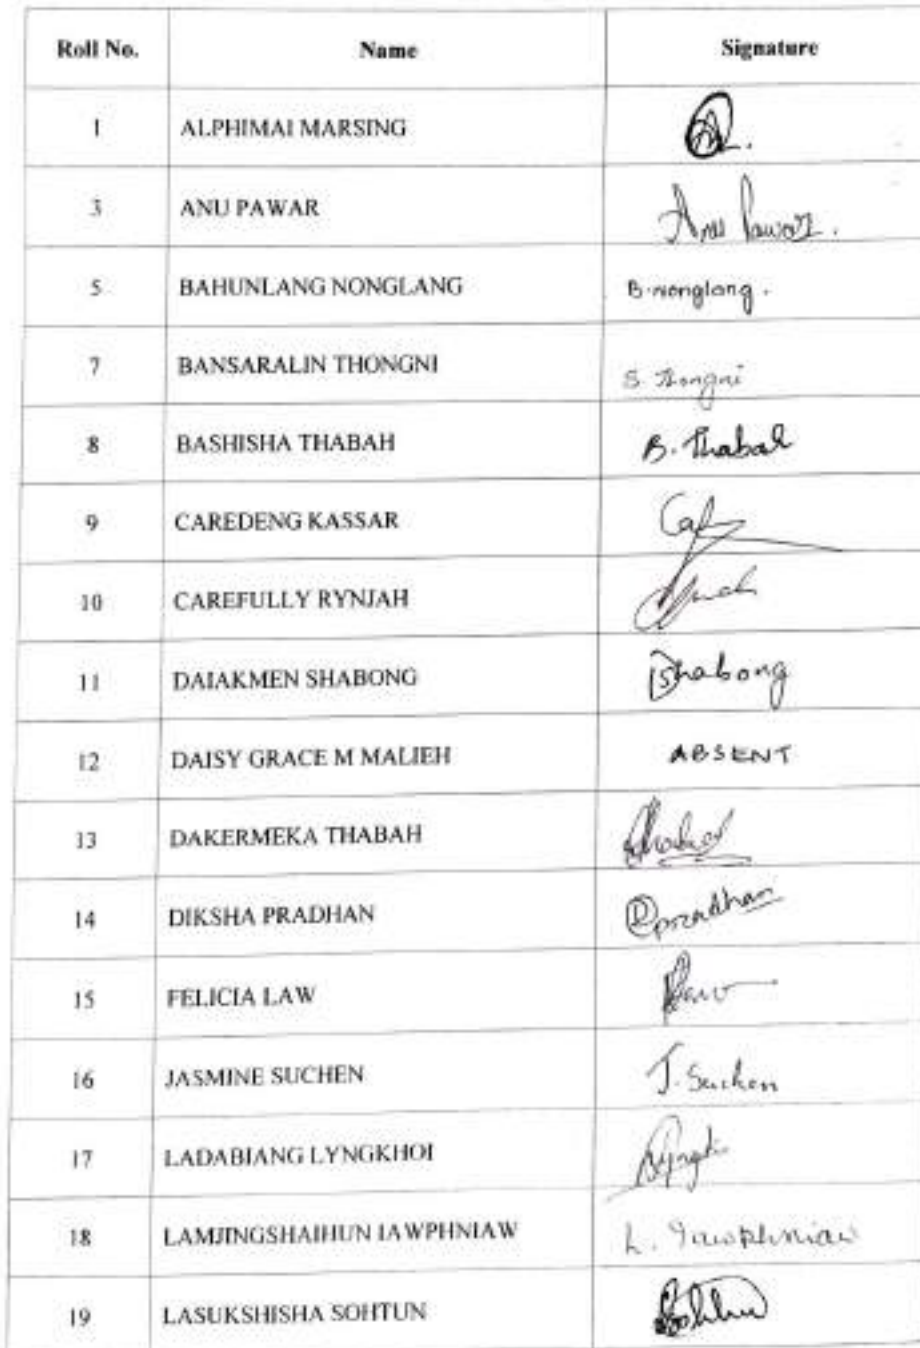 Roll No. Name Signature
1 ALPHIMAI MARSING
3 ANU PAWAR Anu Pawar.
5 BAHUNLANG NONGLANG B.nonglang.
7 BANSARALIN THONGNI S. Thongni
8 BASHISHA THABAH B. Thabah
9 CAREDENG KASSAR
10 CAREFULLY RYNJAH
11 DAIAKMEN SHABONG Shabong
12 DAISY GRACE M MALIEH ABSENT
13 DAKERMEKA THABAH
14 DIKSHA PRADHAN Dpradhan
15 FELICIA LAW
16 JASMINE SUCHEN J. Suchen
17 LADABIANG LYNGKHOI
18 LAMJINGSHAIHUN IAWPHNIAW L. Iawphniaw
19 LASUKSHISHA SOHTUN